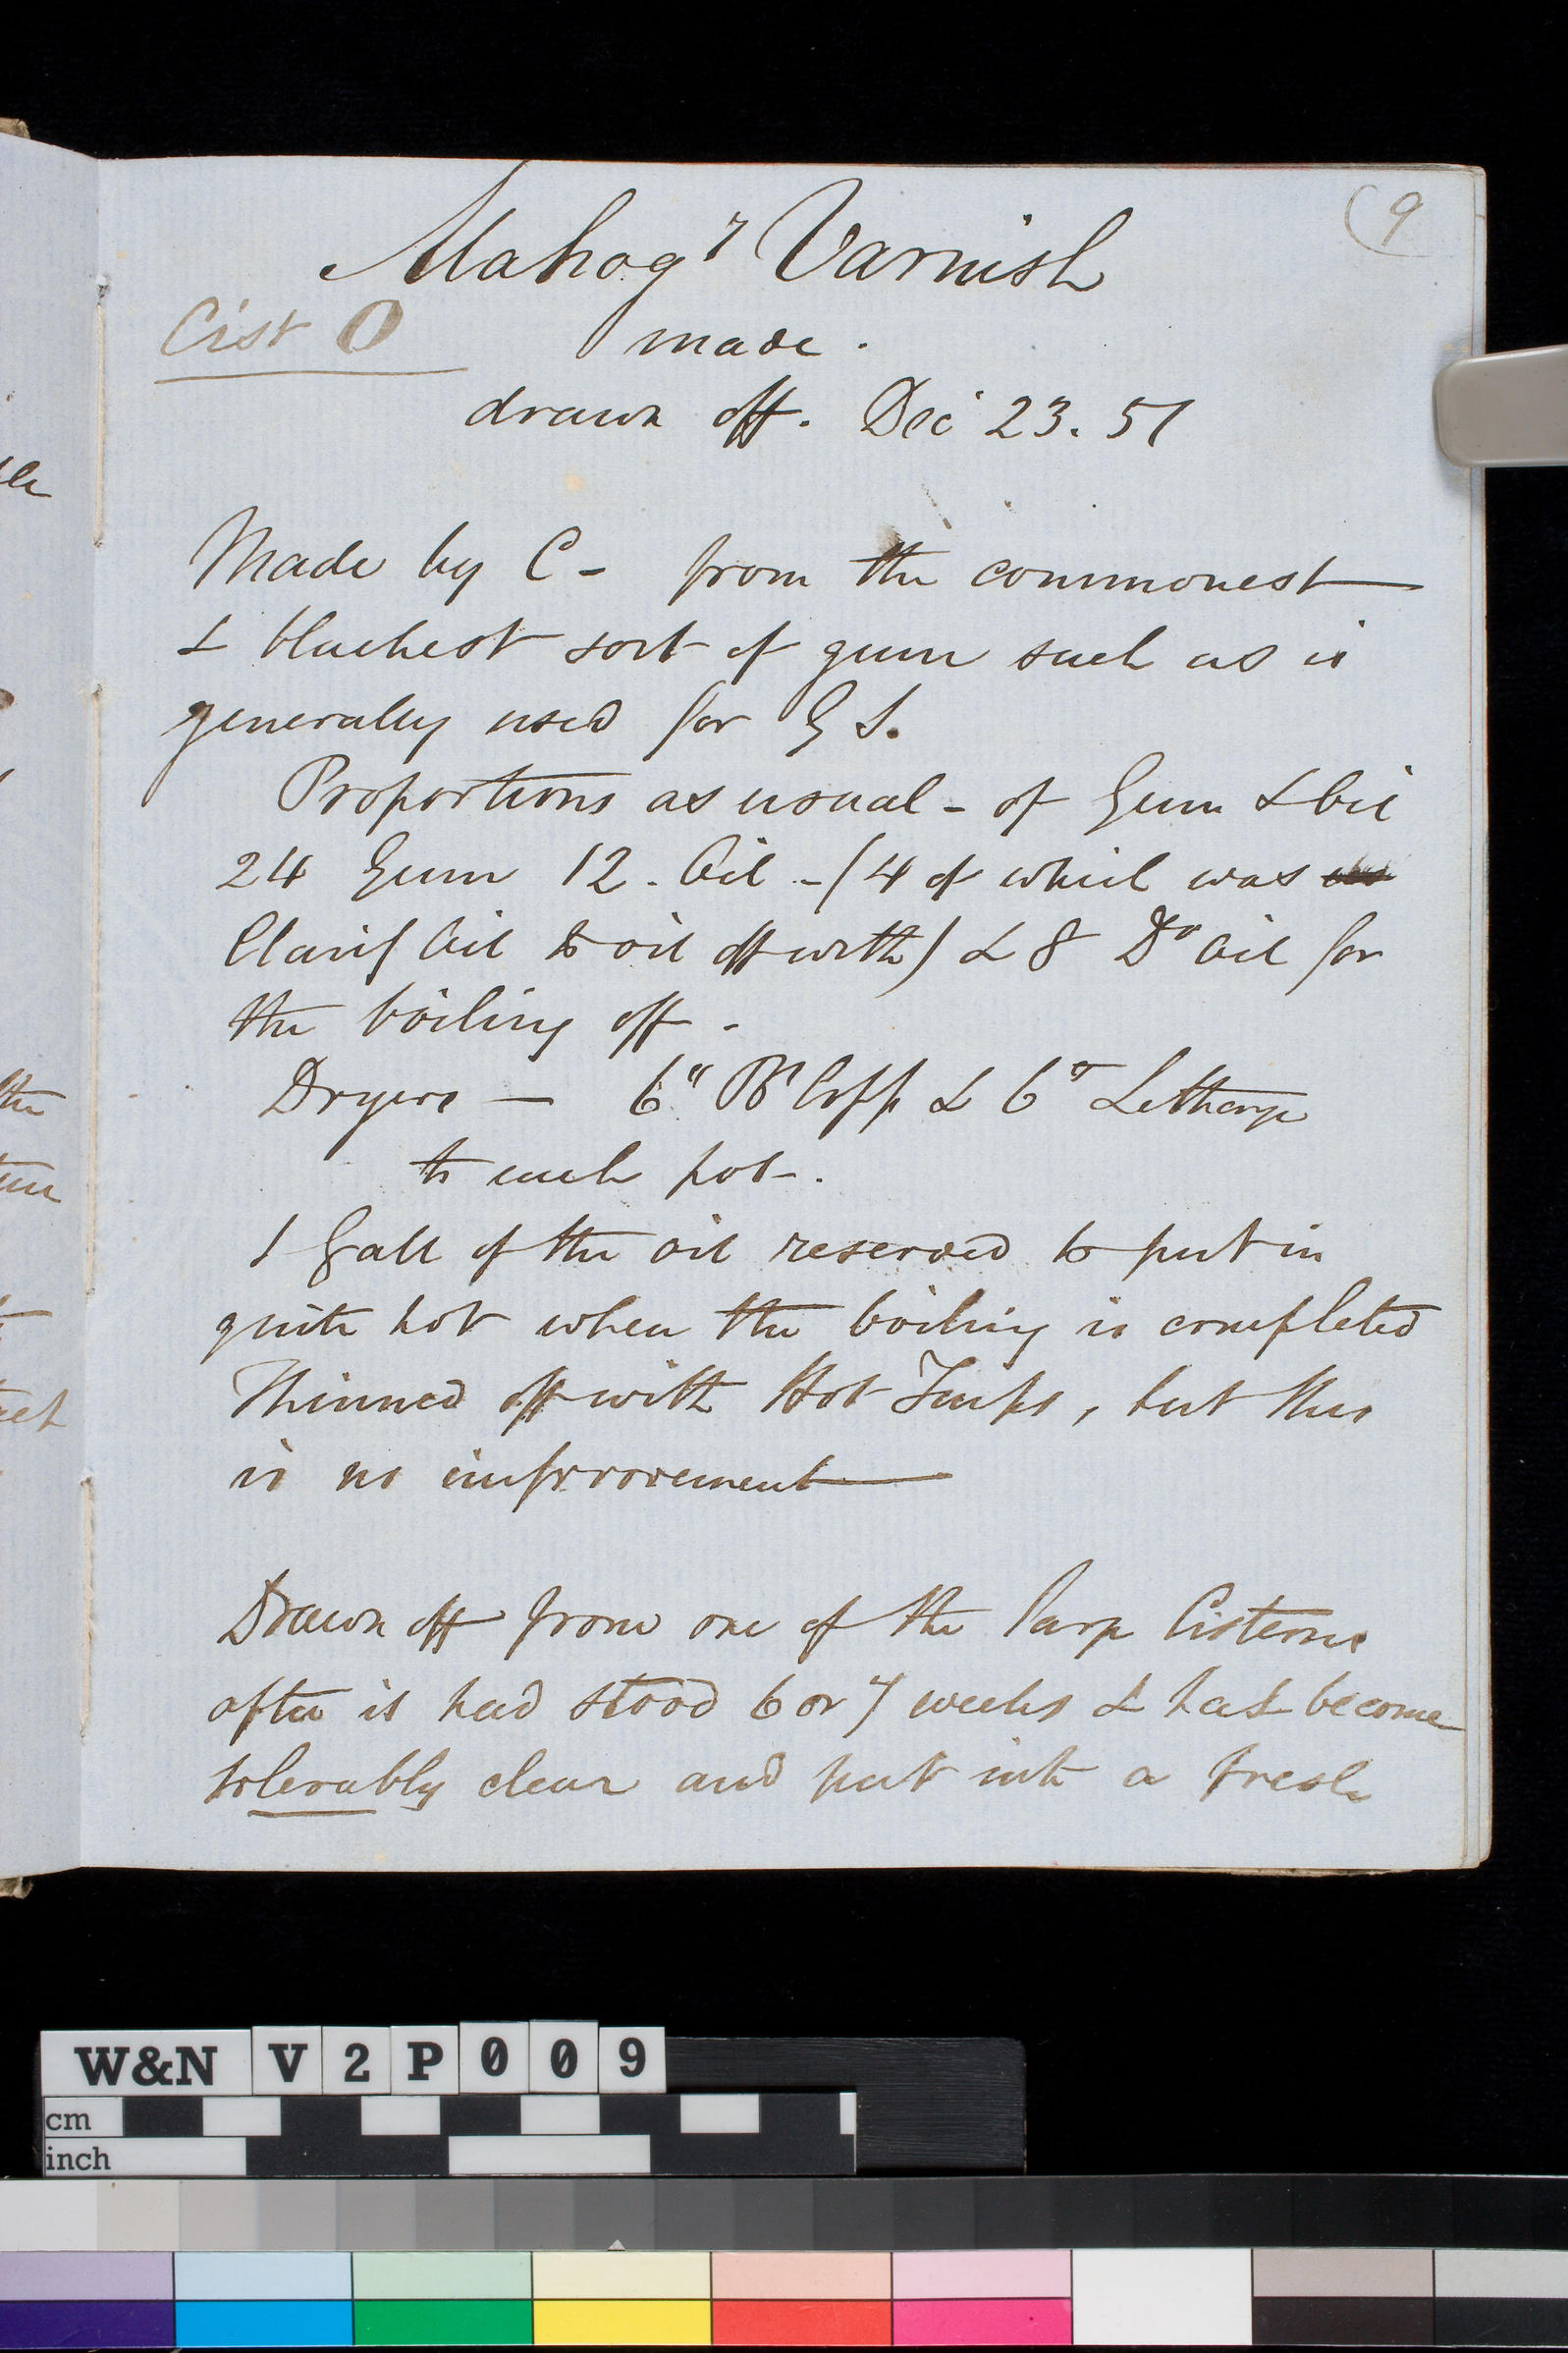 (9
Mahogy Varnish
Cist O made.
drawn off. Dec 23. 51
Made by C - from the commonest
& blackest sort of gum such as is
generally used for G S.
Proportions as usual - of Gum & Oil
24 Gum 12. Oil - (4 of which was
Clarif Oil to oil off with) & 8 Do Oil for
the boiling off -
Dryers — 6" Bt Copp & 6" Letharge
to each pot -.
1 Gall of the oil reserved to put in
quite hot when the boiling is completed
Thinned off with Hot Turps, but this
is no improvement —
Drawn off from one of the large Cisterns
after it had stood 6 or 7 weeks & had become
tolerably clear and put into a fresh
the
W&N V2P009
cm
inch